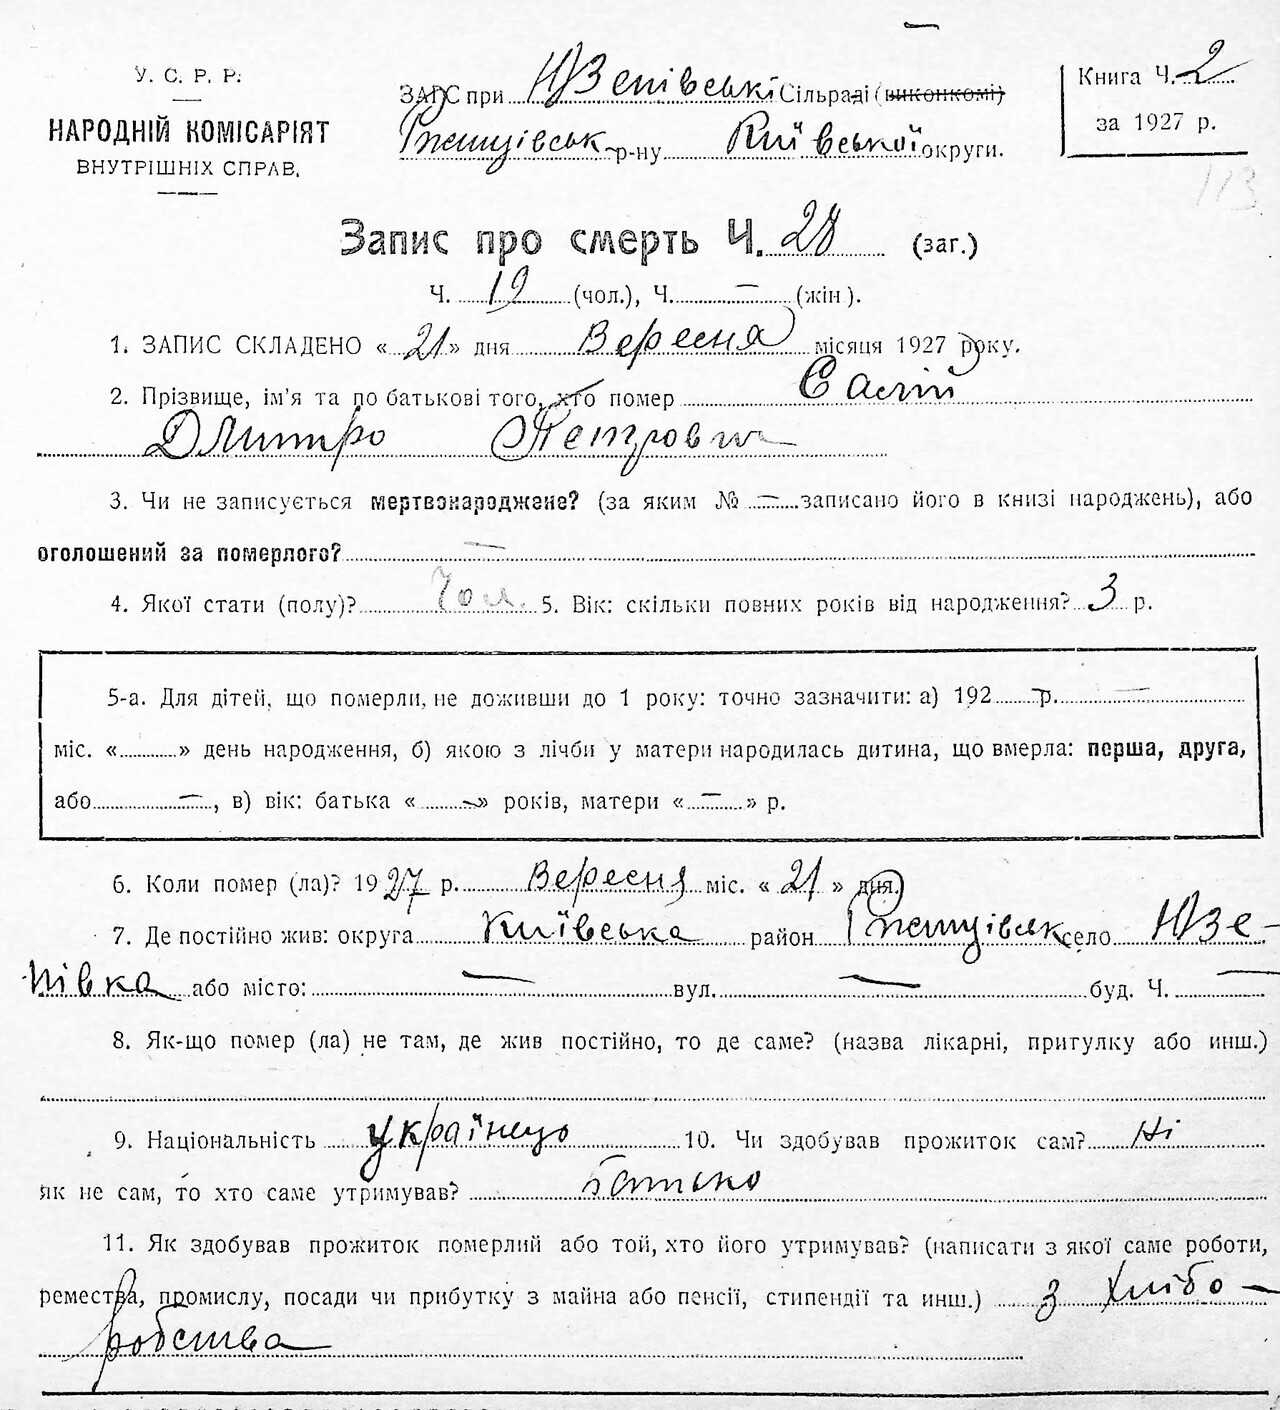 У. С. Р. Р.
НАРОДНІЙ КОМІСАРІЯТ
ВНУТРІШНІХ СПРАВ.
ЗАГС при Юзепівські Сільраді (виконкомі)
Ржищівськ р-ну Київської округи.
Книга Ч. 2
за 1927 р.
113
Запис про смерть Ч. 28 (заг.)
Ч. 19 (чол.), Ч. — (жін).
1. ЗАПИС СКЛАДЕНО « 21 » дня Вересня місяця 1927 року.
2. Прізвище, ім'я та по батькові того, хто помер Салій
Дмитро Петрович
3. Чи не записується мертвонароджене? (за яким № — записано його в книзі народжень), або
оголошений за померлого? —
4. Якої стати (полу)? Чол. 5. Вік: скільки повних років від народження? 3 р.
5-а. Для дітей, що померли, не доживши до 1 року: точно зазначити: а) 192 — р. —
міс. « » день народження, б) якою з лічби у матери народилась дитина, що вмерла: перша, друга,
або —, в) вік: батька « — » років, матери « — » р.
6. Коли помер (ла)? 1927 р. Вересня міс. « 21 » дня.
7. Де постійно жив: округа Київська район Ржищівськ село Юзе-
півка або місто: — вул. — буд. Ч. —
8. Як-що помер (ла) не там, де жив постійно, то де саме? (назва лікарні, притулку або инш.)
9. Національність українець 10. Чи здобував прожиток сам? Ні
як не сам, то хто саме утримував? батько
11. Як здобував прожиток померлий або той, хто його утримував? (написати з якої саме роботи,
ремества, промислу, посади чи прибутку з майна або пенсії, стипендії та инш.) з хлібо-
робства